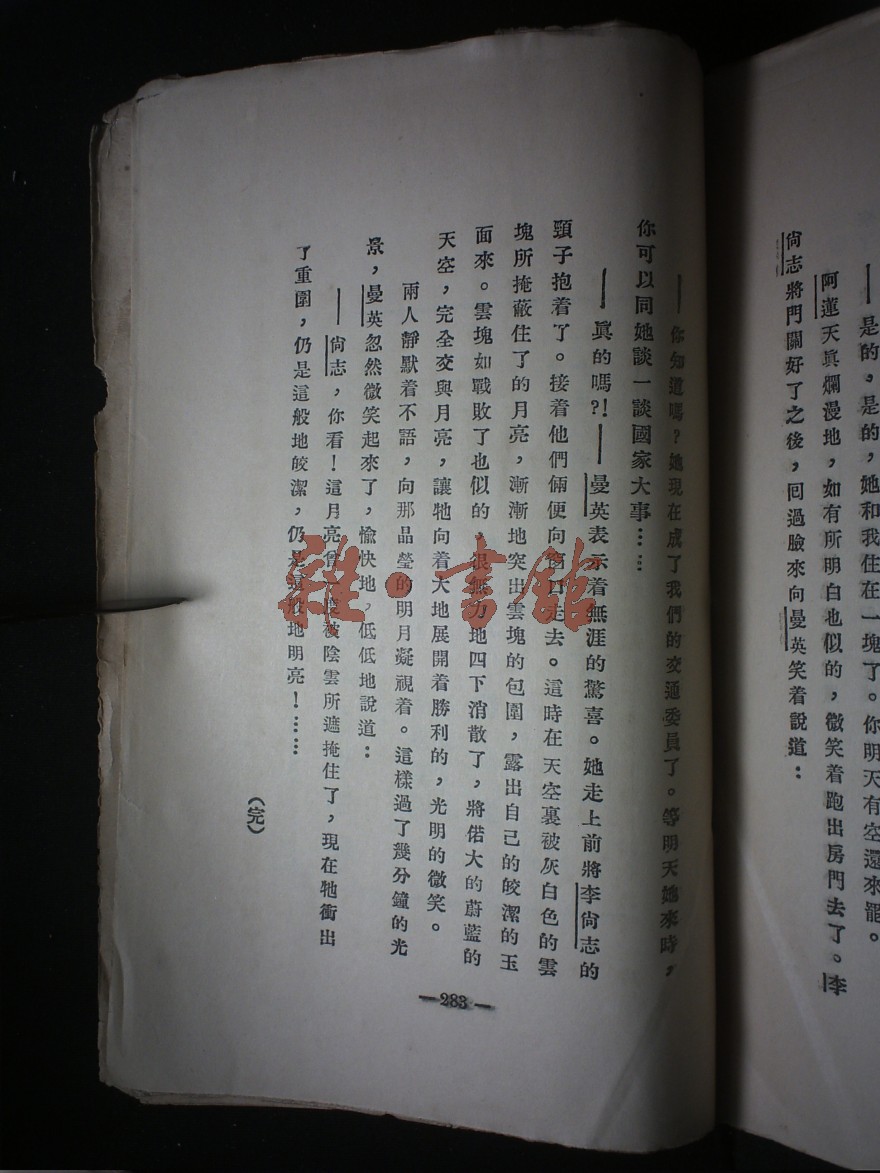 ——是的，是的，她和我住在一塊了。你明天有空還來罷。
阿蓮天真爛漫地，如有所明白也似的，微笑着跑出房門去了。李
尙志將門關好了之後，囘過臉來向曼英笑着說道：
——你知道嗎？她現在成了我們的交通委員了。等明天她來時，
你可以同她談一談國家大事……
——眞的嗎？！——曼英表示着無涯的驚喜。她走上前將李尙志的
頸子抱着了。接着他們倆便向窗口走去。這時在天空裏被灰白色的雲
塊所掩蔽住了的月亮，漸漸地突出雲塊的包圍，露出自己的皎潔的玉
面來。雲塊如戰敗了也似的，很無力地四下消散了，將偌大的蔚藍的
天空，完全交與月亮，讓牠向着大地展開着勝利的，光明的微笑。
兩人靜默着不語，向那晶瑩的明月凝視着。這樣過了幾分鐘的光
景，曼英忽然微笑起來了，愉快地，低低地說道：
——尙志，你看！這月亮曾一度被陰雲所遮掩住了，現在牠衝出
了重圍，仍是這般地皎潔，仍是這般地明亮！……
（完）
—283—
雜·書館